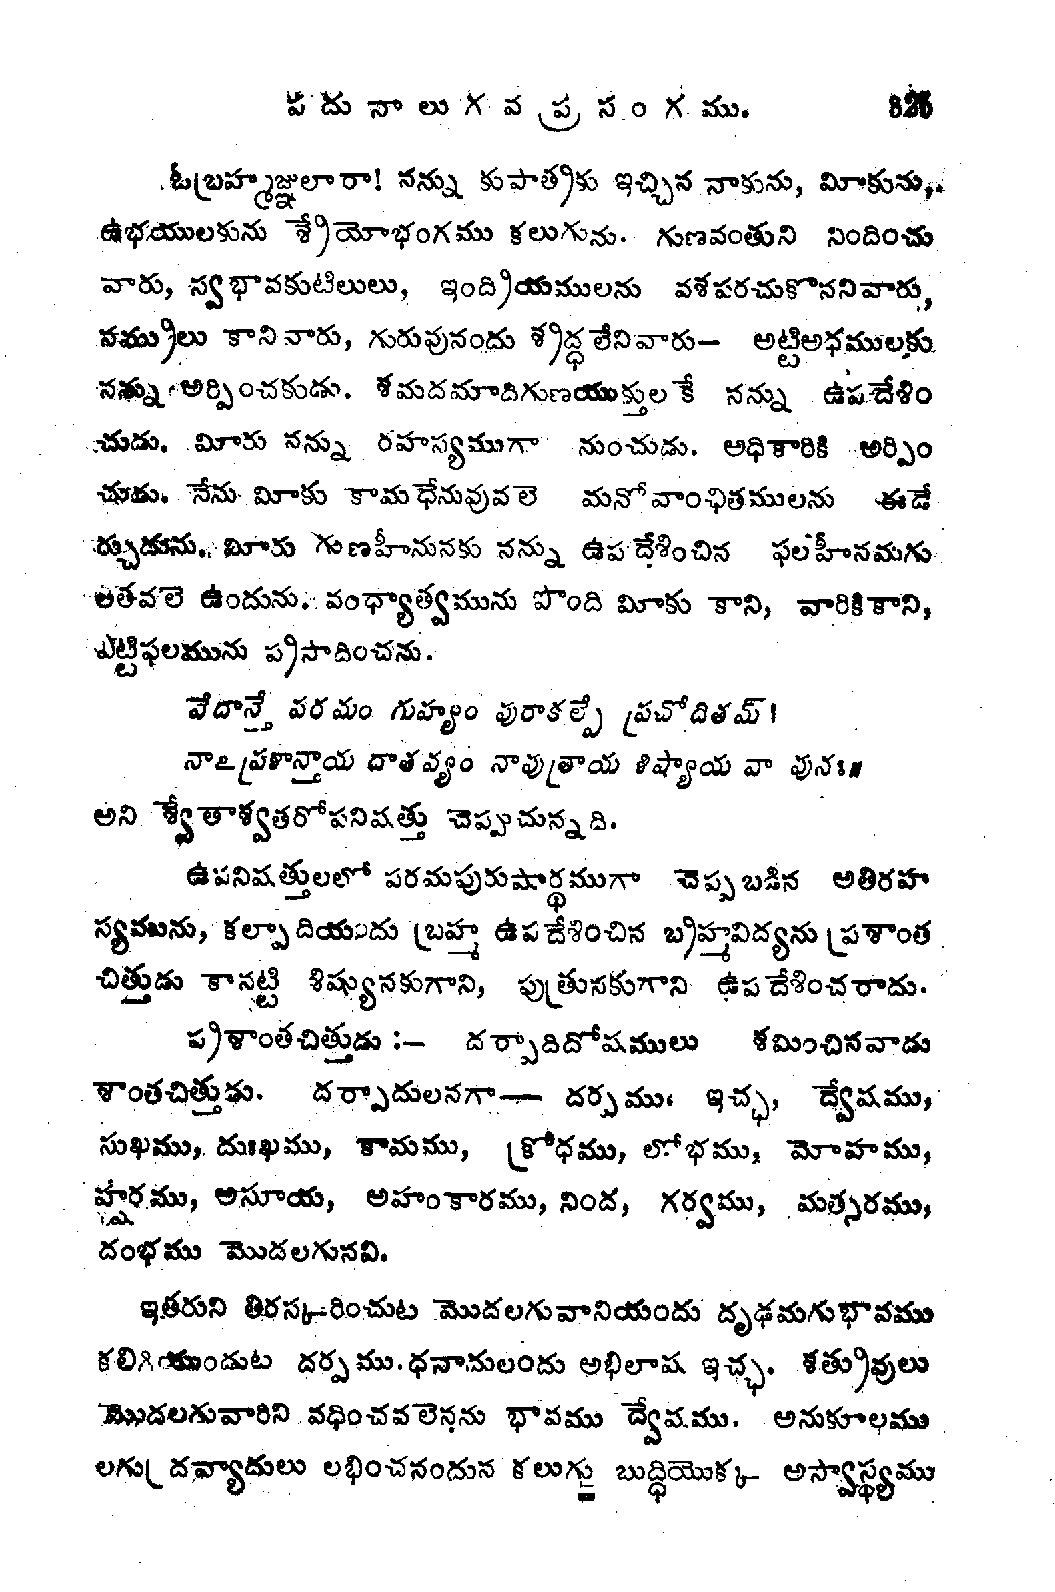 పదునాలుగవ ప్రసంగము.
ఓబ్రహ్మజ్ఞులారా! నన్ను కుపాత్రకు ఇచ్చిన నాకును, మీకును,
ఉభయులకును శ్రేయోభంగము కలుగును. గుణవంతుని నిందించు
వారు, స్వభావకుటిలులు, ఇంద్రియములను వశపరచుకొననివారు,
నమ్రులు కానివారు, గురువునందు శ్రద్ధలేనివారు— అట్టిఅధములకు
నన్ను అర్పించకుడు. శమదమాదిగుణయుక్తులకే నన్ను ఉపదేశిం
చుడు. మీరు నన్ను రహస్యముగా నుంచుడు. అధికారికి అర్పిం
చుడు. నేను మీకు కామధేనువువలె మనోవాంఛితములను ఈడే
ర్చుదును. మీరు గుణహీనునకు నన్ను ఉపదేశించిన ఫలహీనమగు
లతవలె ఉందును. వంధ్యాత్వమును పొంది మీకు కాని, వారికికాని,
ఎట్టిఫలమును ప్రసాదించను.
వేదాన్తే పరమం గుహ్యం పురాకల్పే ప్రచోదితమ్।
నాఽప్రశాన్తాయ దాతవ్యం నాపుత్రాయ శిష్యాయ వా పునః॥
అని శ్వేతాశ్వతరోపనిషత్తు చెప్పుచున్నది.
ఉపనిషత్తులలో పరమపురుషార్థముగా చెప్పబడిన అతిరహ
స్యమును, కల్పాదియందు బ్రహ్మ ఉపదేశించిన బ్రహ్మవిద్యను ప్రశాంత
చిత్తుడు కానట్టి శిష్యునకుగాని, పుత్రునకుగాని ఉపదేశించరాదు.
ప్రశాంతచిత్తుడు :— దర్పాదిదోషములు శమించినవాడు
శాంతచిత్తుడు. దర్పాదులనగా— దర్పము, ఇచ్ఛ, ద్వేషము,
సుఖము, దుఃఖము, కామము, క్రోధము, లోభము, మోహము,
హర్షము, అసూయ, అహంకారము, నింద, గర్వము, మత్సరము,
దంభము మొదలగునవి.
ఇతరుని తిరస్కరించుట మొదలగువానియందు దృఢమగుభావము
కలిగియుండుట దర్పము. ధనాదులందు అభిలాష ఇచ్ఛ. శత్రువులు
మొదలగువారిని వధించవలెనను భావము ద్వేషము. అనుకూలము
లగు ద్రవ్యాదులు లభించనందున కలుగు బుద్ధియొక్క అస్వాస్థ్యము